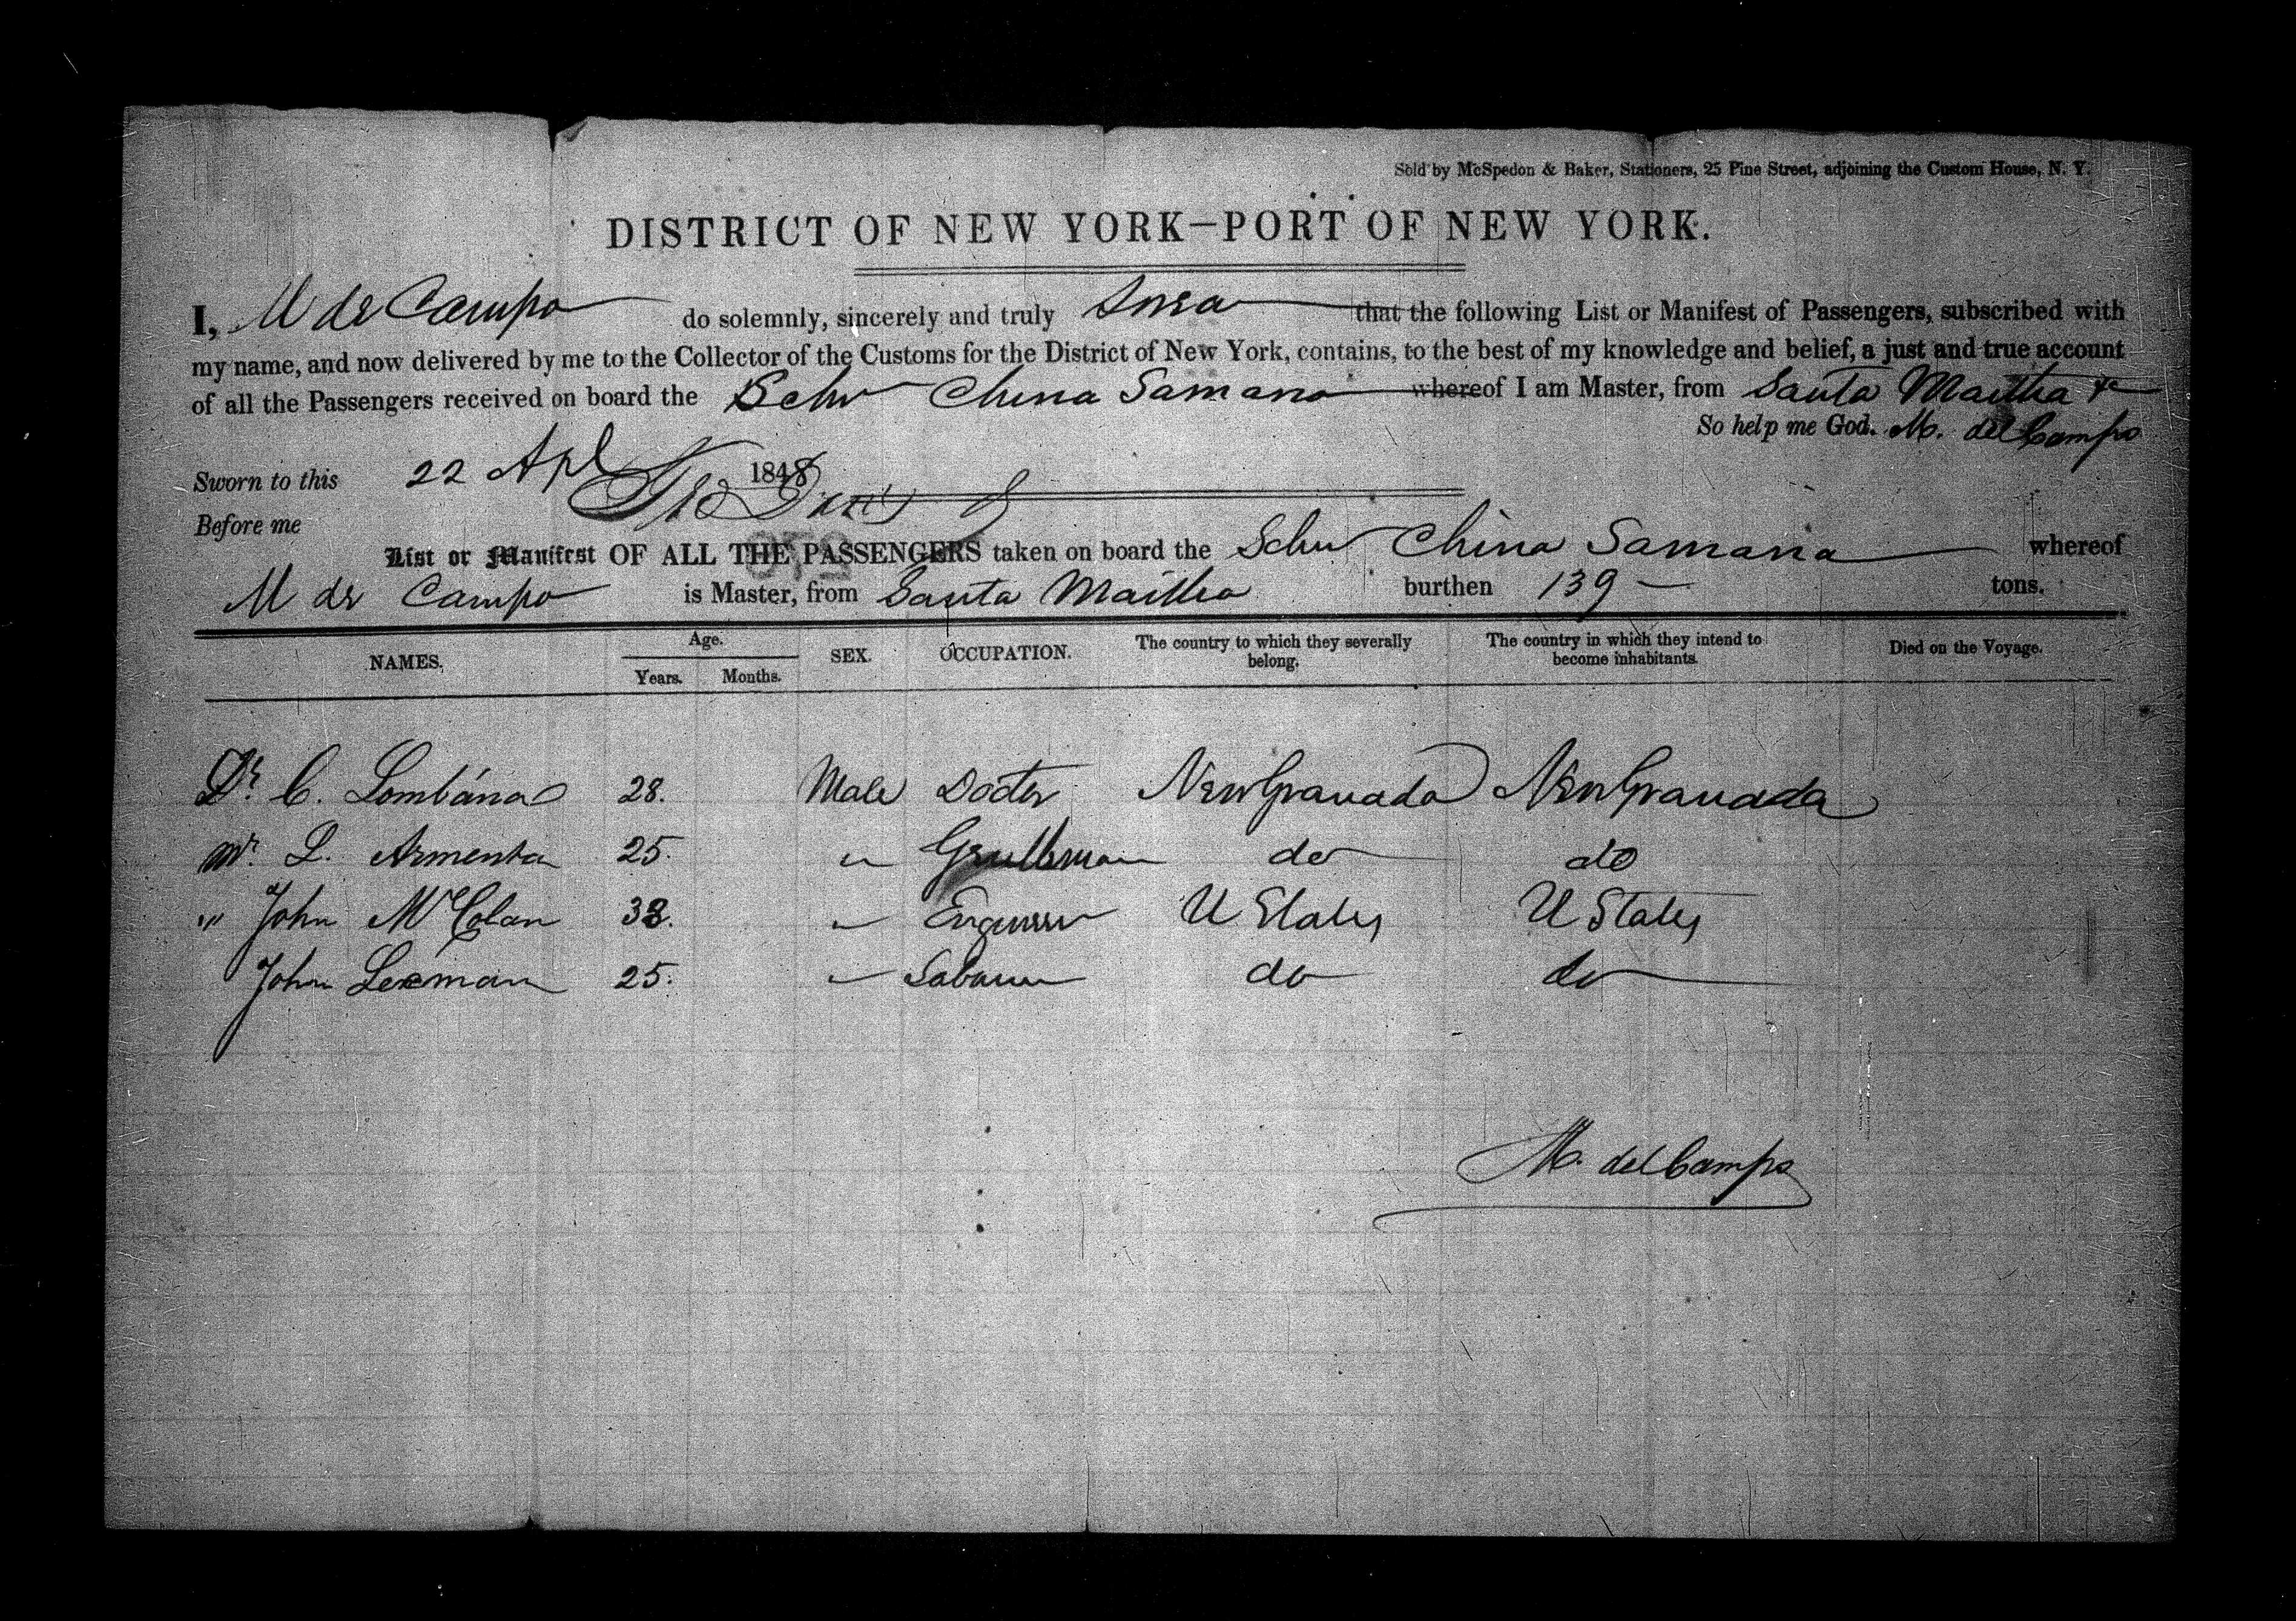 Sold by McSpedon & Baker, Stationers, 25 Pine Street, adjoining the Custom House, N. Y.
DISTRICT OF NEW YORK—PORT OF NEW YORK.
I, M de Campo do solemnly, sincerely and truly that the following List or Manifest of Passengers, subscribed with
my name, and now delivered by me to the Collector of the Customs for the District of New York, contains, to the best of my knowledge and belief, a just and true account
of all the Passengers received on board the Schr China Samaria whereof I am Master, from Santa Martha
So help me God. M. del Campo
Sworn to this 22 Apl 1848
Before me
List or Manifest OF ALL THE PASSENGERS taken on board the Schr China Samaria whereof
M de Campo is Master, from Santa Martha burthen 139 — tons.
NAMES. Age. Years. Months. SEX. OCCUPATION. The country to which they severally belong. The country in which they intend to become inhabitants. Died on the Voyage.
Dr. C. Lombána 28. Male Docter New Granada New Granada
Mr. L. Armenta 25. " Gentleman do do
" John McColan 33. " Engineer U States U States
John Lexman 25. " Labourer do do
M. del Campo